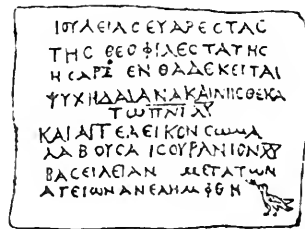 ΙΟΥΛΕΙΑC ΕΥΑΡΕCΤΑC
ΤΗC ΘΕΟΦΙΛΕCΤΑΤΗC
Η CΑΡΞ ΕΝΘΑΔΕ ΚΕΙΤΑΙ
ΨΥΧΗ ΔΑΙ ΑΝΑΚΑΙΝΙCΘΕΙCΑ
ΤΩ ΠΝΙ ΧΥ
ΚΑΙ ΑΓΓΕΛΕΙΚΟΝ CΩΜΑ
ΛΑΒΟΥCΑ ΙC ΟΥΡΑΝΙΟΝ ΧΥ
ΒΑCΕΙΛΕΙΑΝ ΜΕΤΑ ΤΩΝ
ΑΓΕΙΩΝ ΑΝΕΛΗΜΦΘΗ